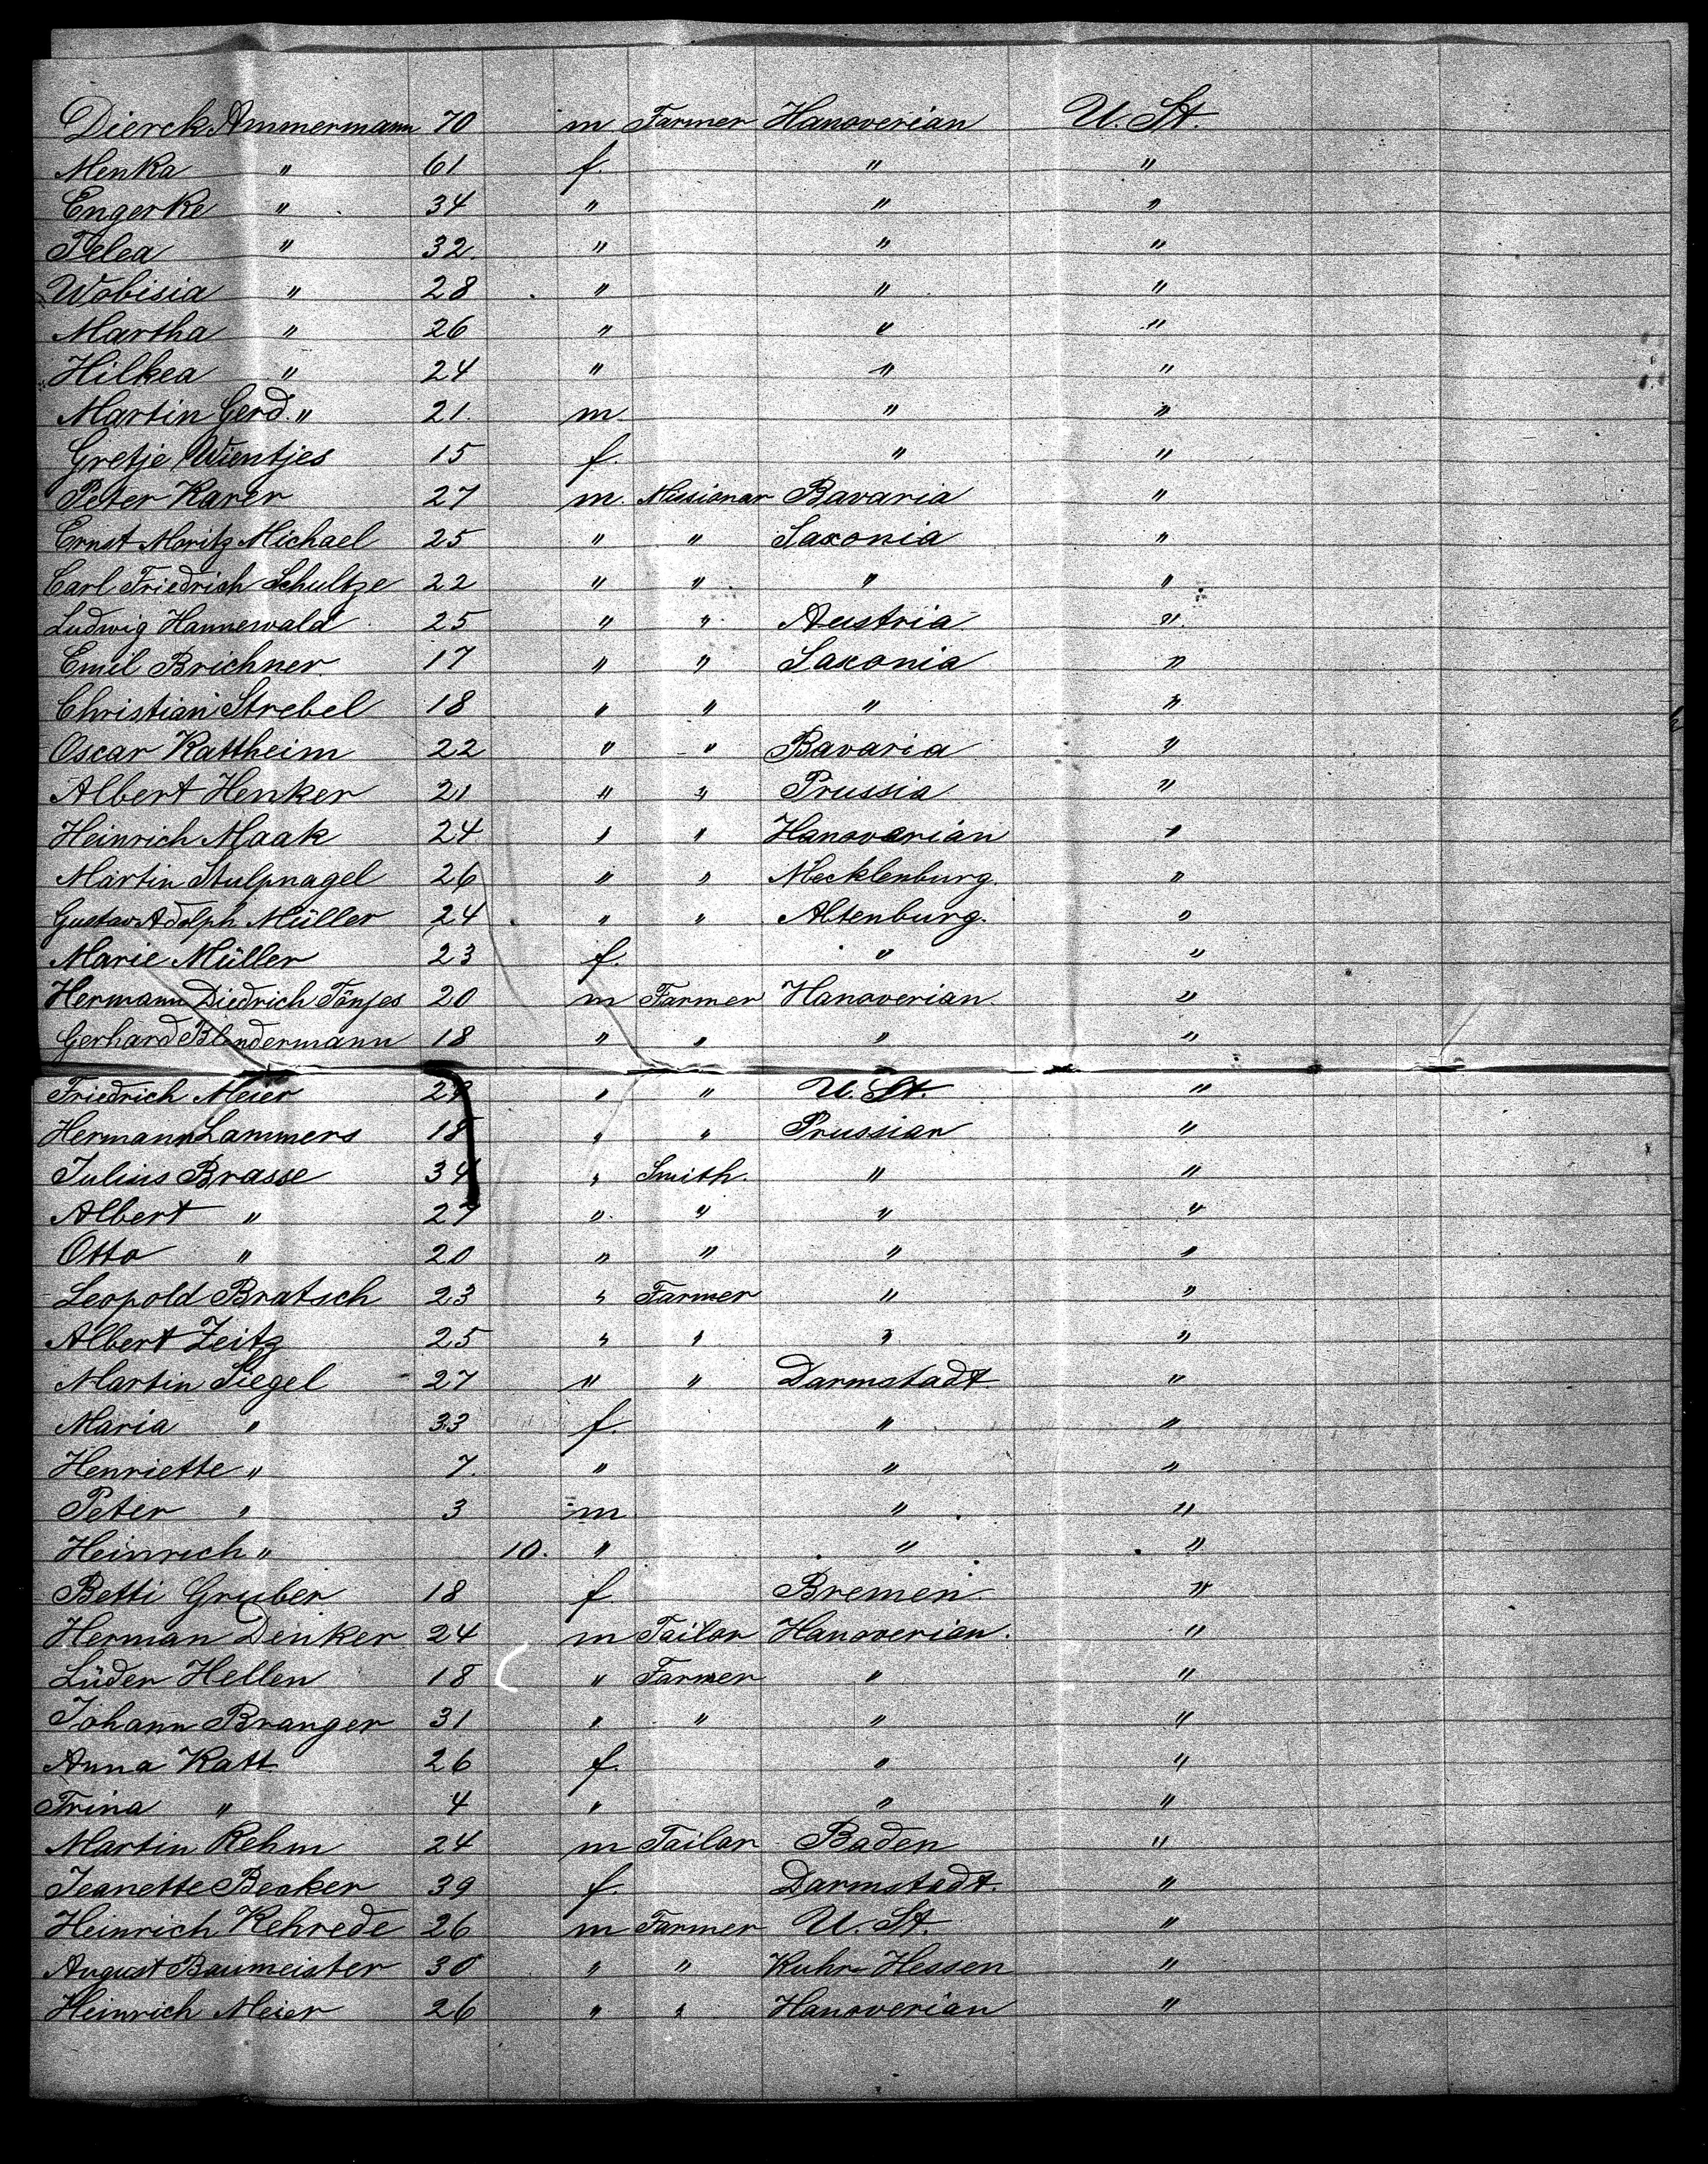 Dierck Ammermann 70 m Farmer Hanoverian U. St.
Menka " 61 f. " "
Engerke " 34 " " "
Telea " 32. " " "
Wobisia " 28 " " "
Martha " 26 " " "
Hilkea " 24 " " "
Martin Gerd. " 21. m. " "
Gretje Wientjes 15 f. " "
Peter Karer 27 m. Missionar Bavaria "
Ernst Moritz Michael 25 " " Saxonia "
Carl Friedrich Schultze 22 " " " "
Ludwig Hannewald 25 " " Austria "
Emil Brichner 17 " " Saxonia "
Christian Strebel 18 " " " "
Oscar Kattheim 22 " " Bavaria "
Albert Henker 21 " " Prussia "
Heinrich Maak 24 " " Hanovarian "
Martin Stulpnagel 26 " " Mecklenburg. "
Gustav Adolph Müller 24 " " Altenburg. "
Marie Müller 23 f. " "
Hermann Diedrich Tönjes 20 m Farmer Hanoverian "
Gerhard Blendermann 18 " " " "
Friedrich Meier " " U. St. "
Hermann Lammers 18 " " Prussian "
Julius Brasse 34 " Smith. " "
Albert " 27 " " " "
Otto " 20 " " " "
Leopold Bratsch 23 " Farmer " "
Albert Zeitz 25 " " " "
Martin Siegel 27 " " Darmstadt "
Maria " 33 f. " "
Henriette " 7. " " "
Peter " 3 m " "
Heinrich " 10. " " "
Betti Gruber 18 f Bremen. "
Herman Denker 24 m Tailor Hanoverian. "
Lüder Hellen 18 " Farmer " "
Johann Branger 31 " " " "
Anna Katt 26 f. " "
Trina " 4 " " "
Martin Rehm 24 m Tailor Baden "
Jeanette Becker 39 f. Darmstadt. "
Heinrich Kehrede 26 m Farmer U. St. "
August Baumeister 30 " " Kuhr-Hessen "
Heinrich Meier 26 " " Hanoverian "